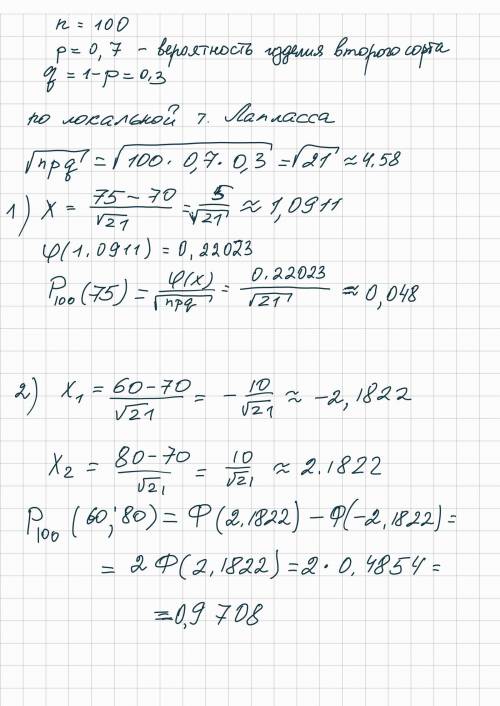 n = 100
p = 0,7 - вероятность изделия второго сорта
q = 1-p = 0,3
по локальной т. Лапласса
√npq = √100 · 0,7 · 0,3 = √21 ≈ 4.58
1) X = 75-70/√21 = 5/√21 ≈ 1,0911
φ(1.0911) = 0,22023
P₁₀₀(75) = φ(x)/√npq = 0.22023/√21 ≈ 0,048
2) X₁ = 60-70/√21 = - 10/√21 ≈ -2,1822
X₂ = 80-70/√21 = 10/√21 ≈ 2.1822
P₁₀₀(60; 80) = Ф(2,1822) - Ф(-2,1822) =
= 2Ф(2,1822) = 2 · 0,4854 =
= 0,9708